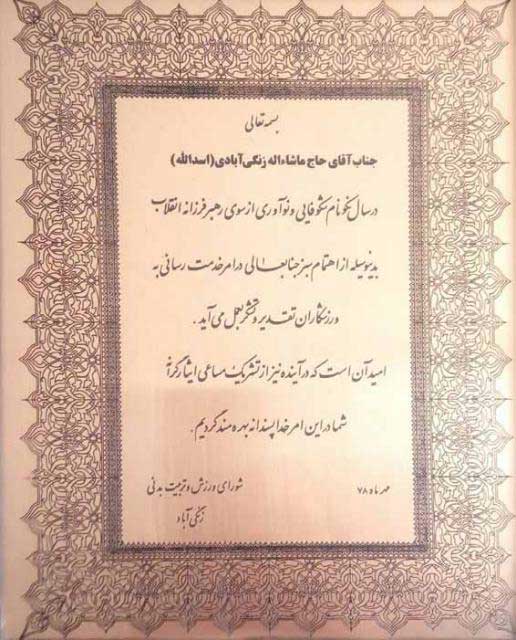 بسمه تعالی
جناب آقای حاج ماشاءاله زنگی‌آبادی (اسدالله)
در سال نکو نام شکوفایی و نوآوری از سوی رهبر فرزانه انقلاب
بدینوسیله از اهتمام سبز جنابعالی در امر خدمت رسانی به
ورزشکاران تقدیر و تشکر بعمل می‌آید.
امید آن است که در آینده نیز از تشریک مساعی ایثارگرانه
شما در این امر خدا پسندانه بهره مند گردیم.
مهر ماه ۷۸ شورای ورزش و تربیت بدنی
زنگی آباد